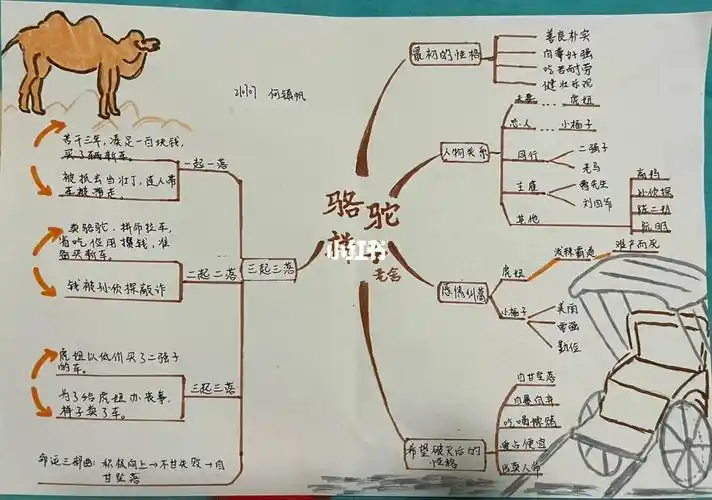 2107 何镇帆
骆驼
祥子
老舍
小红书
三起三落
一起一落
苦干三年，凑足一百块钱，
买了辆新车。
被抓去当壮丁，连人带
车被掳走。
二起二落
卖骆驼，拼命拉车，
省吃俭用攒钱，准
备买新车。
钱被孙侦探敲诈
三起三落
虎妞以低价买了二强子
的车。
为了给虎妞办丧事，
祥子卖了车。
命运三部曲：积极向上→不甘失败→自
甘堕落
最初的性格
善良朴实
自尊好强
吃苦耐劳
健壮乐观
人物关系
夫妻 … 虎妞
恋人 … 小福子
同行
二强子
老马
主雇
曹先生
刘四爷
其他
高妈
孙侦探
陈二奶
阮明
感情纠葛
虎妞
泼辣霸道
难产而死
小福子
美丽
要强
勤俭
希望破灭后的
性格
自甘堕落
自暴自弃
吃喝嫖赌
占便宜
出卖人命